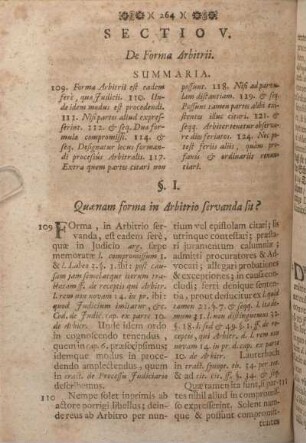 264
SECTIO V.
De Forma Arbitrii.
SUMMARIA.
109. Forma Arbitrii est eadem
ferè, quæ Judicii. 110. Un-
de idem modus est procedendi.
111. Nisi partes aliud expres-
serint. 112. & seq. Duo for-
mula compromissi. 114. & 
seq. Designatur locus forman-
di processus Arbitralis. 117.
Extra quem partes citari non
possunt. 118. Nisi ad parvu-
lam distantiam. 119. & seq.
Possunt tamen partes alibi con-
stentu illus citari. 121. &
seqq. Arbiter tenetur observa-
re dies feriatos. 124. Nec po-
test feriis aliis, quàm pro-
fanis & ordinariis renun-
tiari.
§. I.
Quænam forma in Arbitrio servanda sit?
109 FOrma, in Arbitrio ser-
vanda, est eadem ferè,
quæ in Judicio arg. sæpe
memoratæ l. compromissum 1.
& l. Labeo 3. §. 1. ibi: post cau-
sam plenè semelque iterum tra-
ctatam ff. de receptis qui Arbitr.
l. rem non novam 14. in pr. ibi:
quod judicium imitatur, &c.
Cod. de Judic. cap. ex parte 10.
de Arbitr. Unde idem ordo
in cognoscendo tenendus,
quem in cap. 6. præcisissimus
idemque modus in proce-
dendo amplectendus, quem
in tract. de Processu Judiciario
descripsimus.
110 Nempe solet inprimis ab
actore porrigi libellus; dein-
de reus ab Arbitro per nun-
tium vel epistolam citari; lis
utrinque contestari; præsta-
ri juramentum calumniæ;
admitti procuratores & Ad-
vocati; adhiberi probationes
& exceptiones; in causa con-
cludi; ferri denique senten-
tia, prout deducitur ex l. quid
tamen 21. §. 7. & seqq. l. item-
mum 31. l. non distinguemus 32.
§. 18. l. sed & 49. §. 1. ff. de re-
ceptis, qui Arbitr. d. l. rem non
novam 14. in pr. d. cap. ex parte
10. de Arbitr. Lauterbach
in
& ad tit. ff. §. 34. & seq.
Quæ tamen ita sunt, si par- 111
tes nihil aliud in compromis-
so expresserint. Solent nam-
que & possunt compromit-
tentes